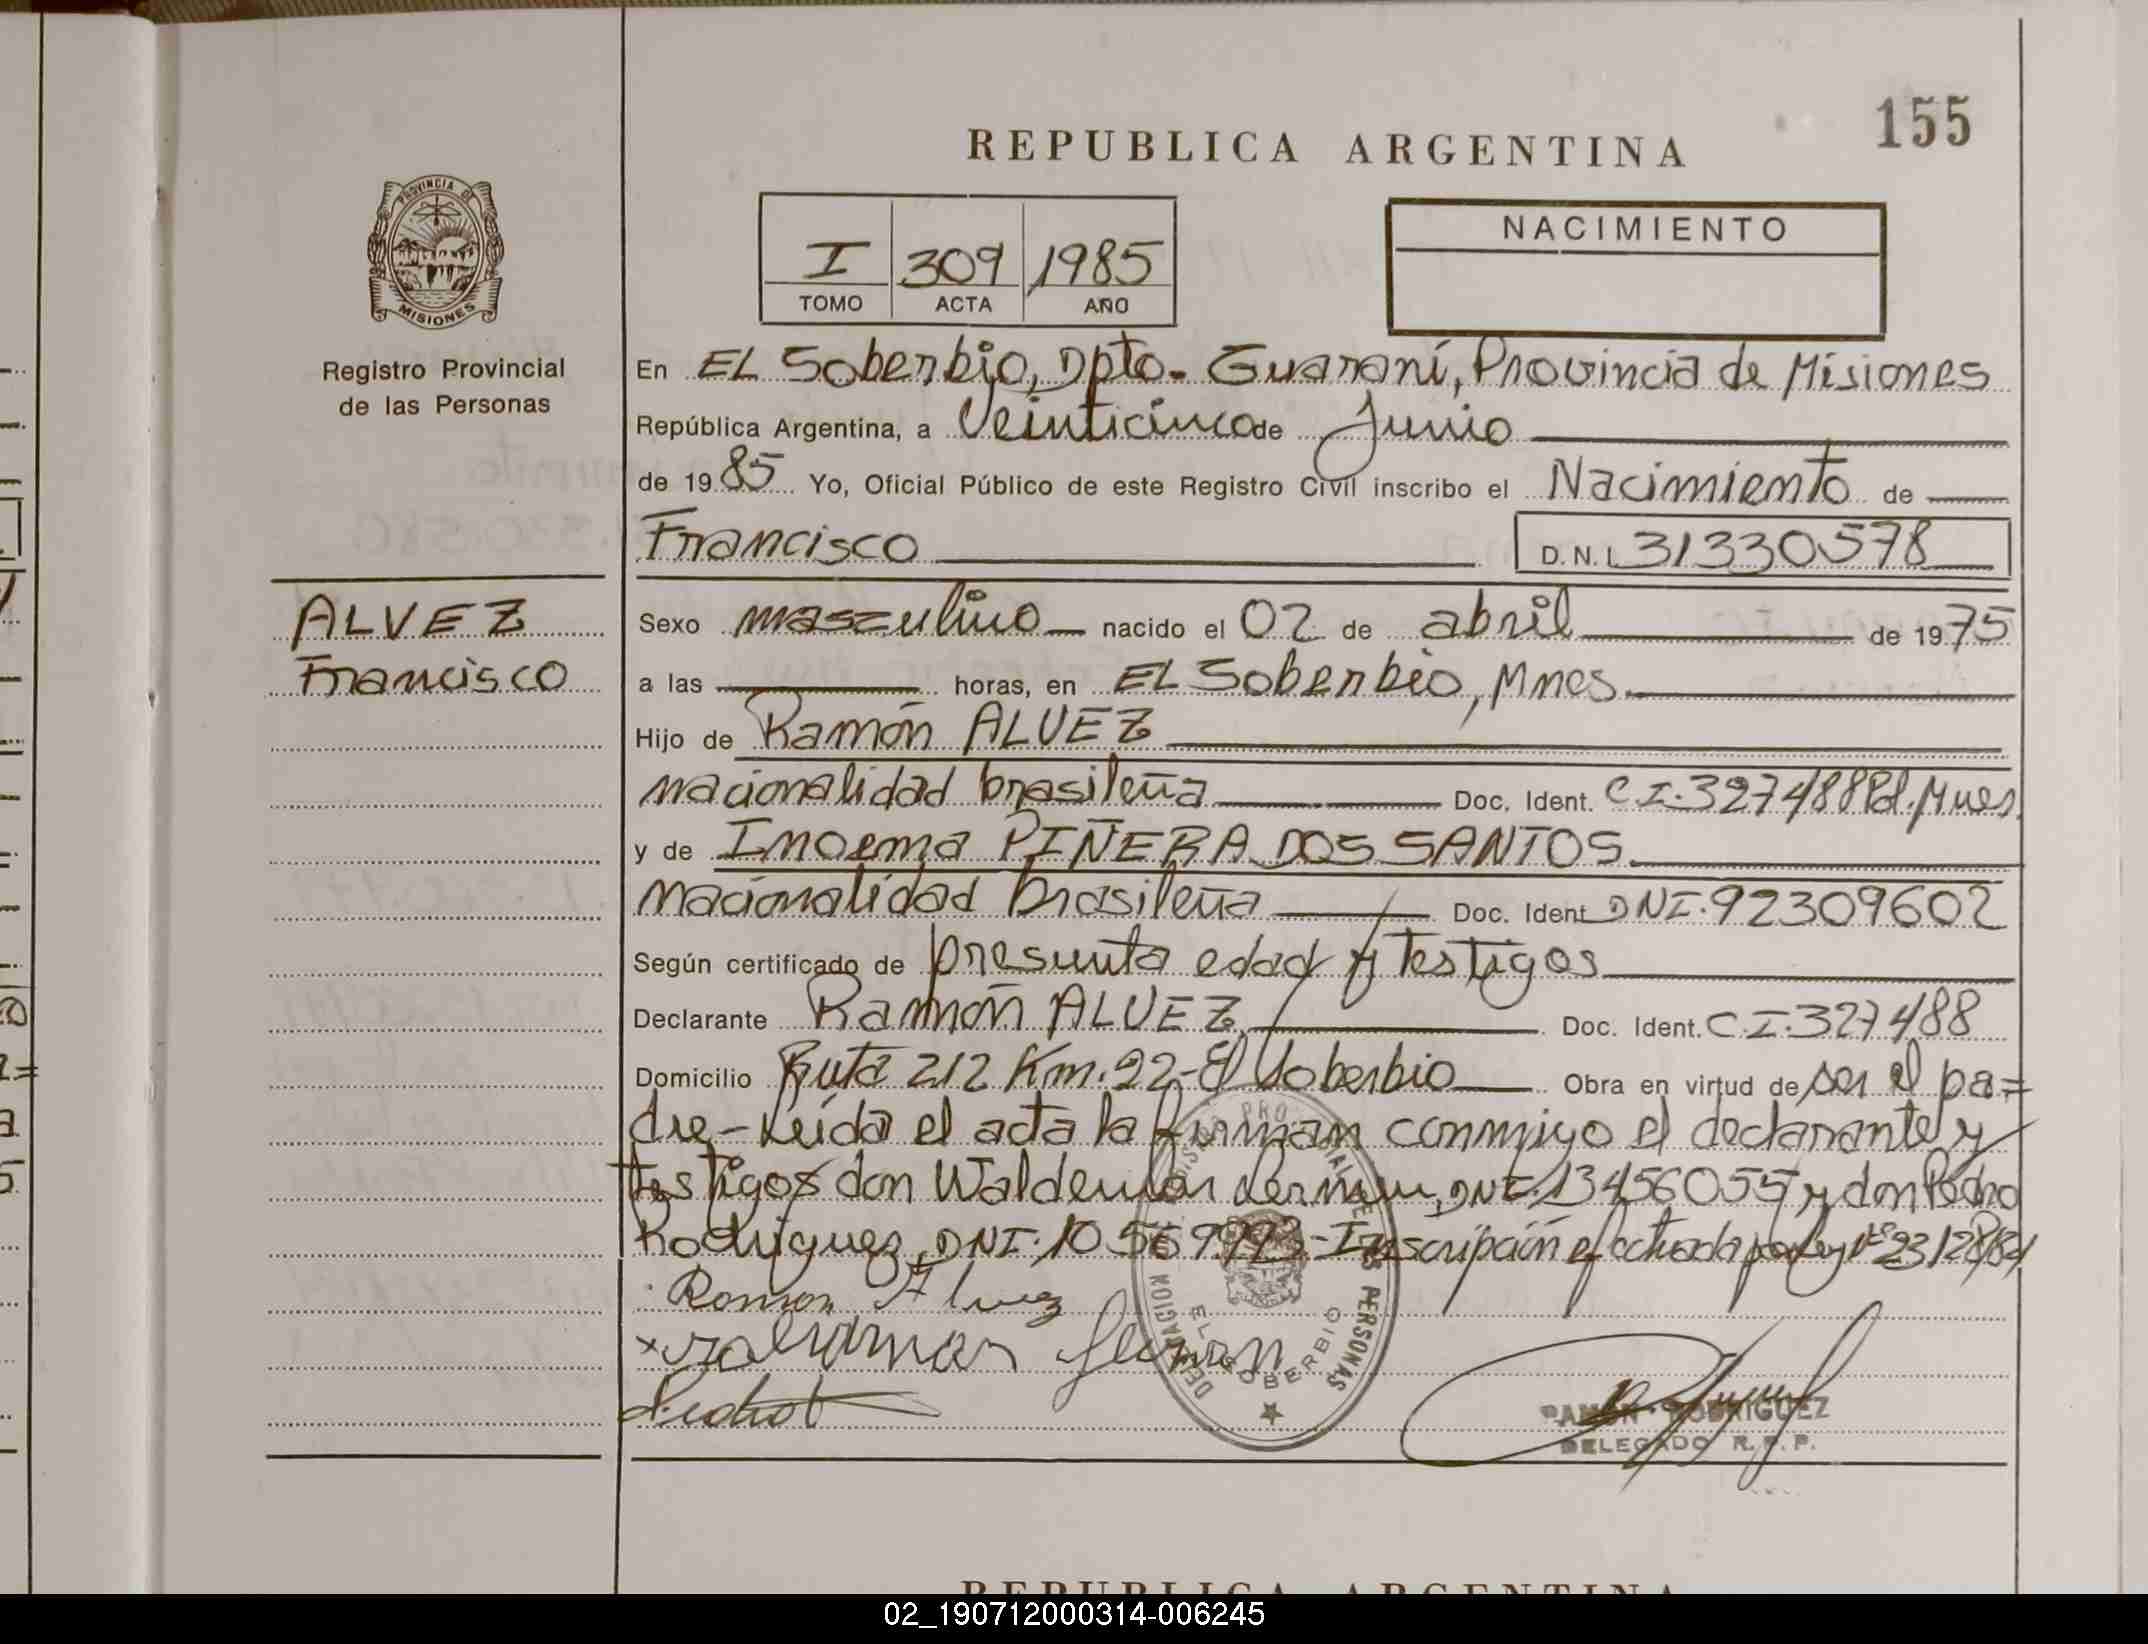 155
REPUBLICA ARGENTINA
PROVINCIA DE
MISIONES
I 309 1985
TOMO ACTA AÑO
NACIMIENTO
Registro Provincial
de las Personas
En EL Soberbio, Dpto. Guaraní, Provincia de Misiones
República Argentina, a Veinticinco de Junio
de 1985 Yo, Oficial Público de este Registro Civil inscribo el Nacimiento de
Francisco D.N.I. 31330578
ALVEZ
Francisco
Sexo masculino nacido el 02 de abril de 1975
a las horas, en EL Soberbio, Mnes.
Hijo de Ramón ALVEZ
nacionalidad brasileña Doc. Ident. C.I. 327488 Pol. Mnes.
y de Imoema PIÑERA DOS SANTOS.
nacionalidad brasileña Doc. Ident DNI. 92309602
Según certificado de presunta edad y testigos
Declarante Ramón ALVEZ, Doc. Ident. C.I. 327488
Domicilio Ruta 212 Km. 22- El Soberbio Obra en virtud de ser el pa=
dre- Leída el acta la firman conmigo el declarante y
testigos don Waldemar DNI. 13456055 y don Pedro
Rodriguez, DNI. 10.569.993- Inscripción efectuada por ley Nº 23128/84
Ramon Alvez
DELEGACION EL SOBERBIO
PERSONAS
RAMON RODRIGUEZ
DELEGADO R. P. P.
REPUBLICA ARGENTINA
02_190712000314-006245